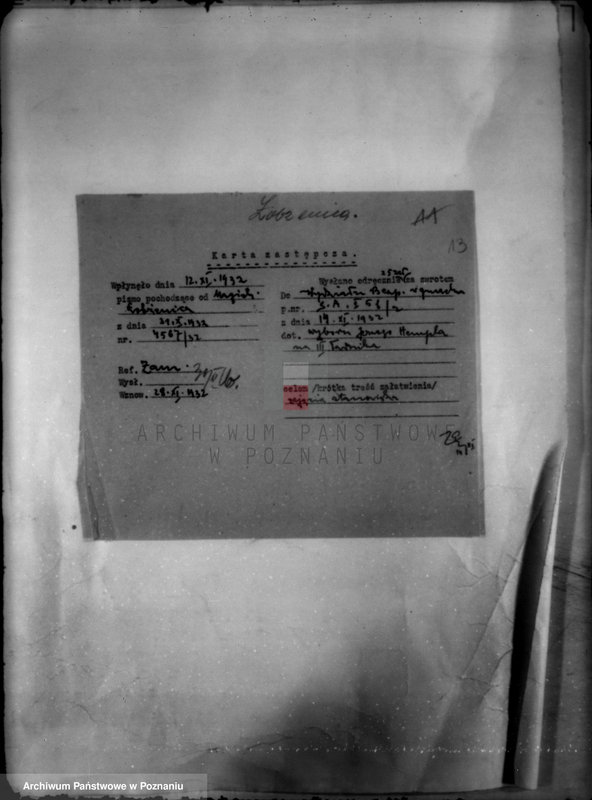 Łobżenica.
13
Karta zastępcza.
Wpłynęło dnia 12.XI.1932
pismo pochodzące od Magistr.
Łobżenica
z dnia 31.X.1932
nr. 4567/32
Ref. Zam:
Wysł.
Wznow. 28.XI.1932
Wysłano odręcznie za zwrotem
Do Wydziału Bezp. w gmachu
p.nr.
z dnia 19.XI.1932
dot. wyboru Hempla
na III
celem /krótka treść załatwienia/
zajęcia stanowiska
ARCHIWUM PAŃSTWOWE
W POZNANIU
Archiwum Państwowe w Poznaniu